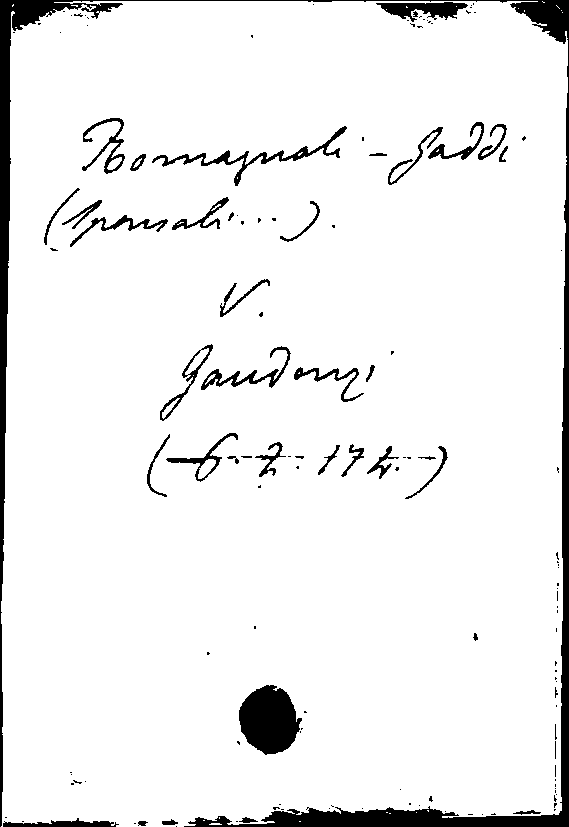 Romagnoli - Gaddi
(Sponsali...).
V.
Gaudenzi
(6. Z. 174.)